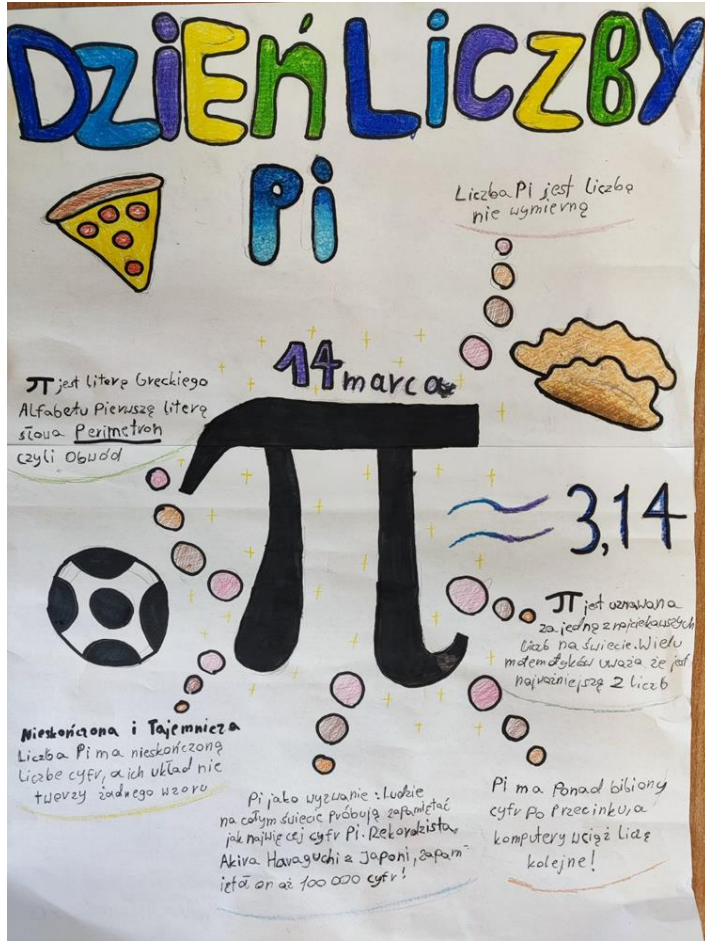 DZIEŃ LICZBY
Pi
Liczba Pi jest liczbą
nie wymierną
14 marca
π jest literą Greckiego
Alfabetu Pierwszą literą
słowa Perimetron
czyli Obwód
π
≈ 3,14
π jest uznawana
za jedną z najciekawszych
liczb na świecie. Wielu
matematyków uważa że jest
najważniejszą z liczb
Nieskończona i Tajemnicza
Liczba Pi ma nieskończoną
liczbe cyfr, a ich układ nie
tworzy żadnego wzoru
Pi jako wyzwanie: Ludzie
na całym świecie próbują zapamiętać
jak najwięcej cyfr Pi. Rekordzista,
Akira Haraguchi z Japoni, zapam-
iętał on aż 100 000 cyfr!
Pi ma Ponad bibiony
cyfr Po Przecinku, a
komputery wciąż liczą
kolejne!